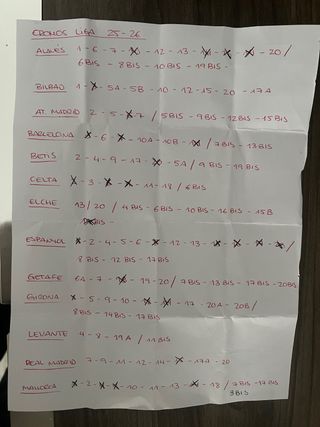 CROMOS LIGA 25-26
ALAVÉS 1 - 6 - 7 - - 12 - 13 - - - - 20 /
6 BIS - 8 BIS - 10 BIS - 19 BIS -
BILBAO 1 - - 5A - 5B - 10 - 12 - 15 - 20 - 17A
AT. MADRID 2 - 5 - 7 / 5 BIS - 9 BIS - 12 BIS - 15 BIS
BARCELONA - 6 - - 10A - 10B - / 7 BIS - 13 BIS
BETIS 2 - 4 - 9 - 17 - - 5A / 9 BIS - 19 BIS
CELTA - 3 - - - 11 - 18 / 6 BIS
ELCHE 13 / 20 / 4 BIS - 6 BIS - 10 BIS - 16 BIS - 15B
BIS -
ESPANYOL - 2 - 4 - 5 - 6 - - 12 - 13 - - - - /
8 BIS - 12 BIS - 17 BIS
GETAFE 6A - 7 - - 19 - 20 / 7 BIS - 13 BIS - 17 BIS - 20 BIS
GIRONA - 5 - 9 - 10 - - - 17 - 20A - 20B /
8 BIS - 14 BIS - 17 BIS
LEVANTE 4 - 8 - 19A / 11 BIS
REAL MADRID 7 - 9 - 11 - 12 - 14 - - 17A - 20
MALLORCA - 2 - - - 10 - 11 - 13 - - 18 / 7 BIS - 17 BIS
3 BIS